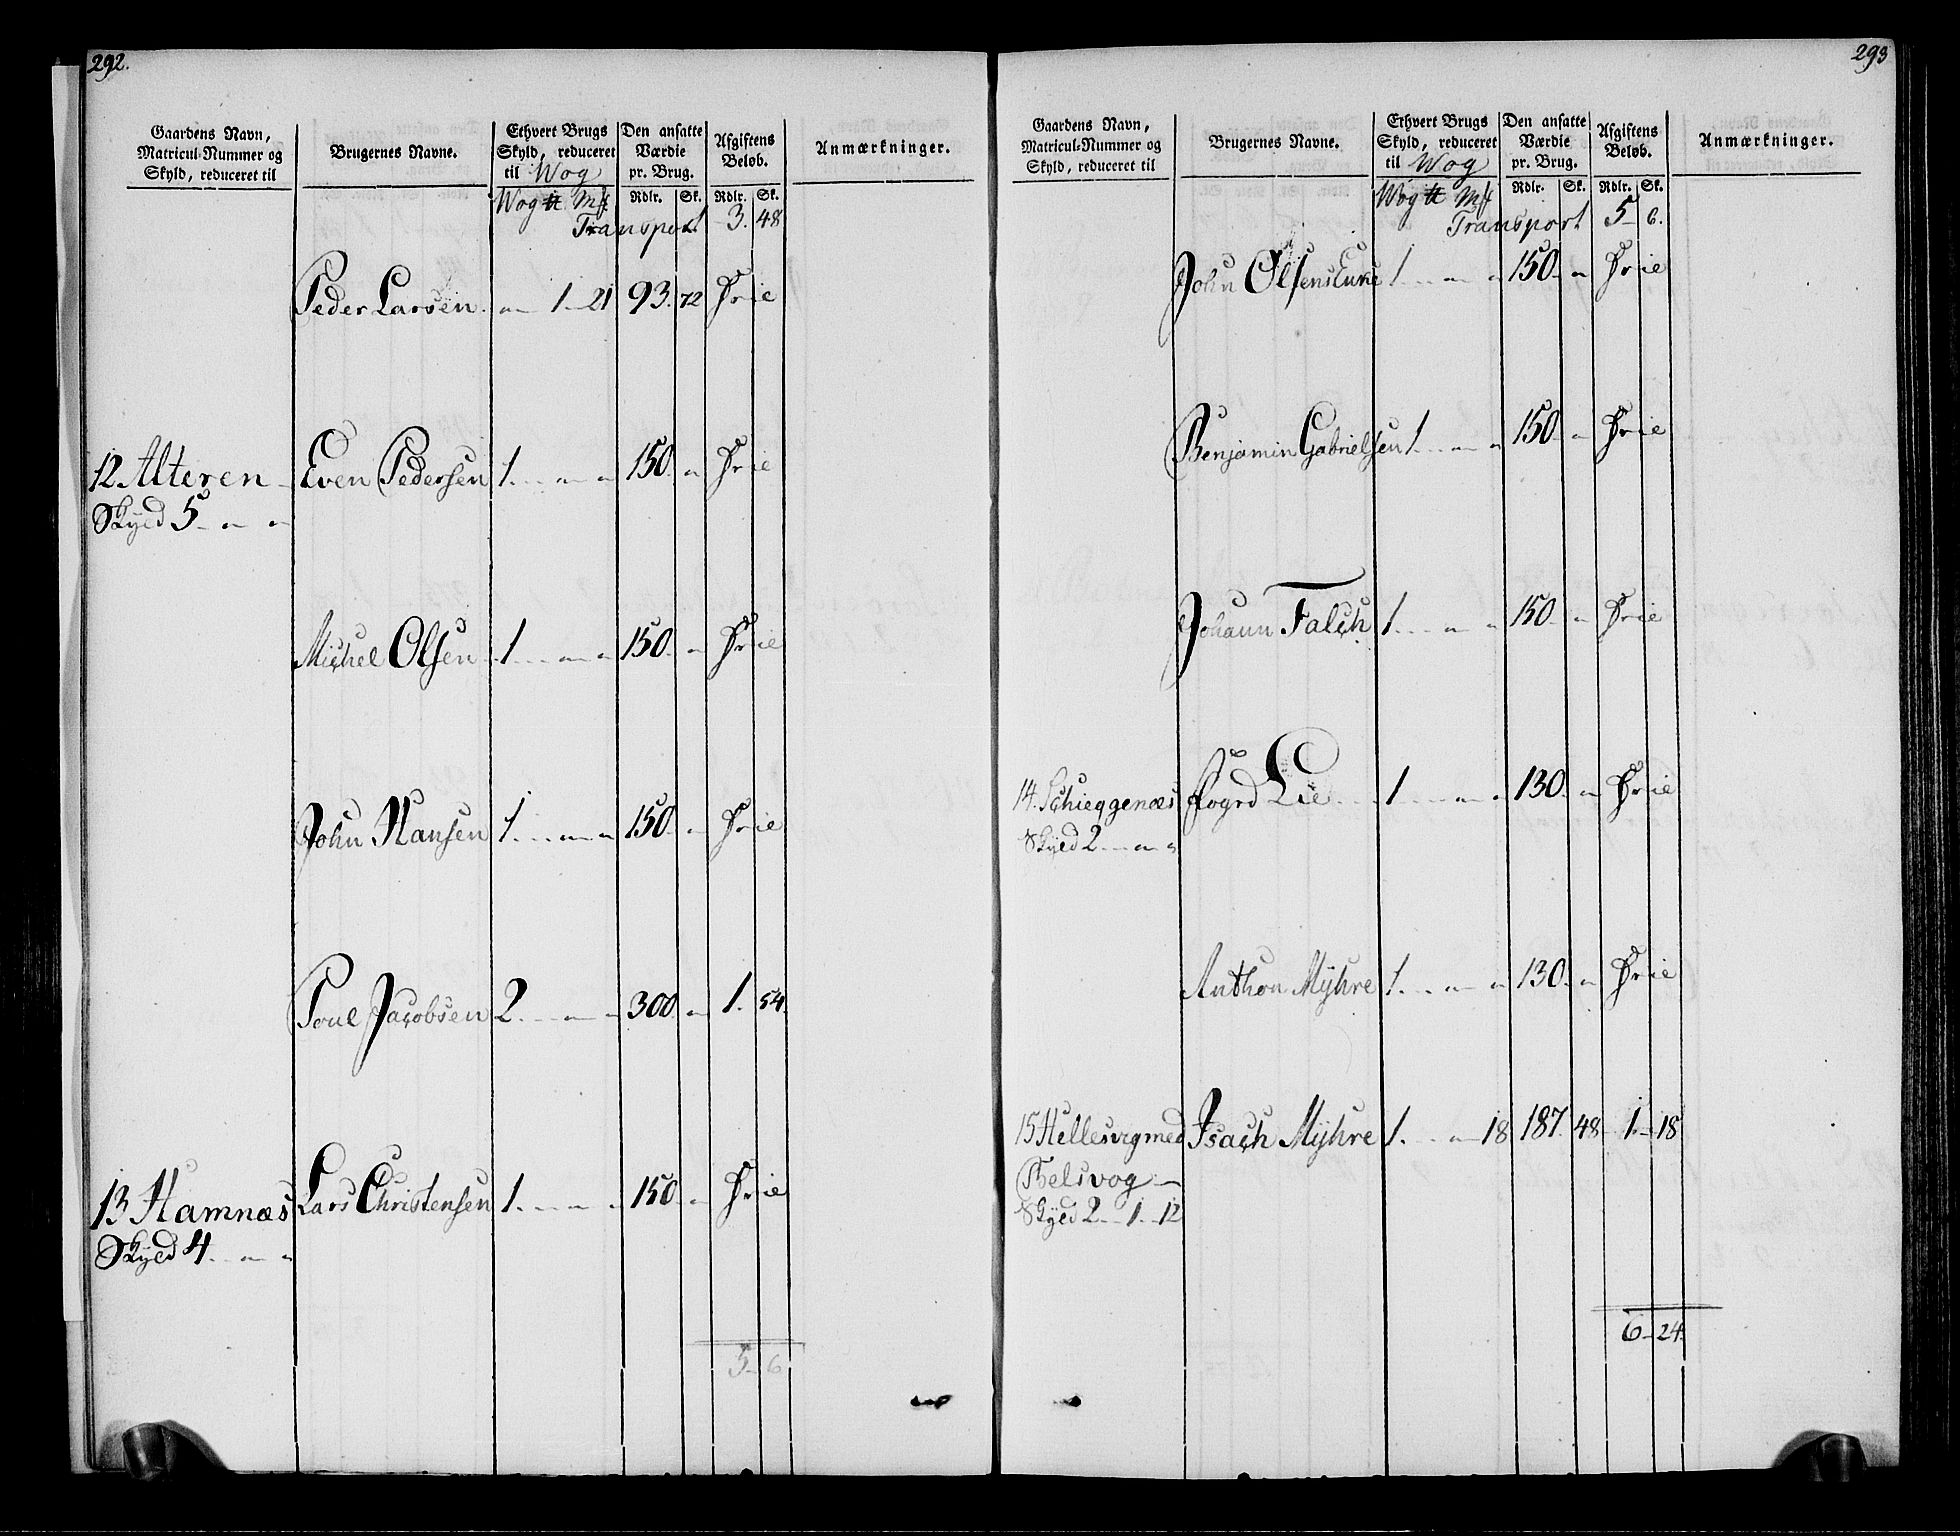 292.
Gaardens Navn, Matricul-Nummer og Skyld, reduceret til
Brugernes Navne.
Ethvert Brugs Skyld, reduceret til Wog
Den ansatte Værdie pr. Brug.
Afgiftens Beløb.
Anmærkninger.
Wog ℔ Mk Rdlr. Sk. Rdlr. Sk.
Transport 3. 48
Peder Larsen. " 1 21 93. 72 Frie
12 Alteren Even Pedersen 1 " " 150. " Frie
Skyld 5 " "
Michel Olsen 1 " " 150. " Frie
John Hansen 1 " " 150. " Frie
Poul Jacobsen 2 " " 300. " 1. 54.
13 Hamnæs Lars Christensen 1 " " 150. " Frie
Skyld 4 " "
5 6
293
Gaardens Navn, Matricul-Nummer og Skyld, reduceret til
Brugernes Navne.
Ethvert Brugs Skyld, reduceret til Wog
Den ansatte Værdie pr. Brug.
Afgiftens Beløb.
Anmærkninger.
Wog ℔ Mk Rdlr. Sk. Rdlr. Sk.
Transport 5 6.
John Olsens Enke 1 " " 150. " Frie
Benjamin Gabrielsen 1 " " 150. " Frie
Johann Falch 1 " " 150. " Frie
14. Schieggenæs Fogrd Lie 1 " " 130. " Frie
Skyld 2 " "
Anthon Myhre 1 " " 130. " Frie
15 Hellesvig med Isach Myhre 1. " 18 187. 48 1. 18
Belsvog
Skyld 2 1 12
6 24.